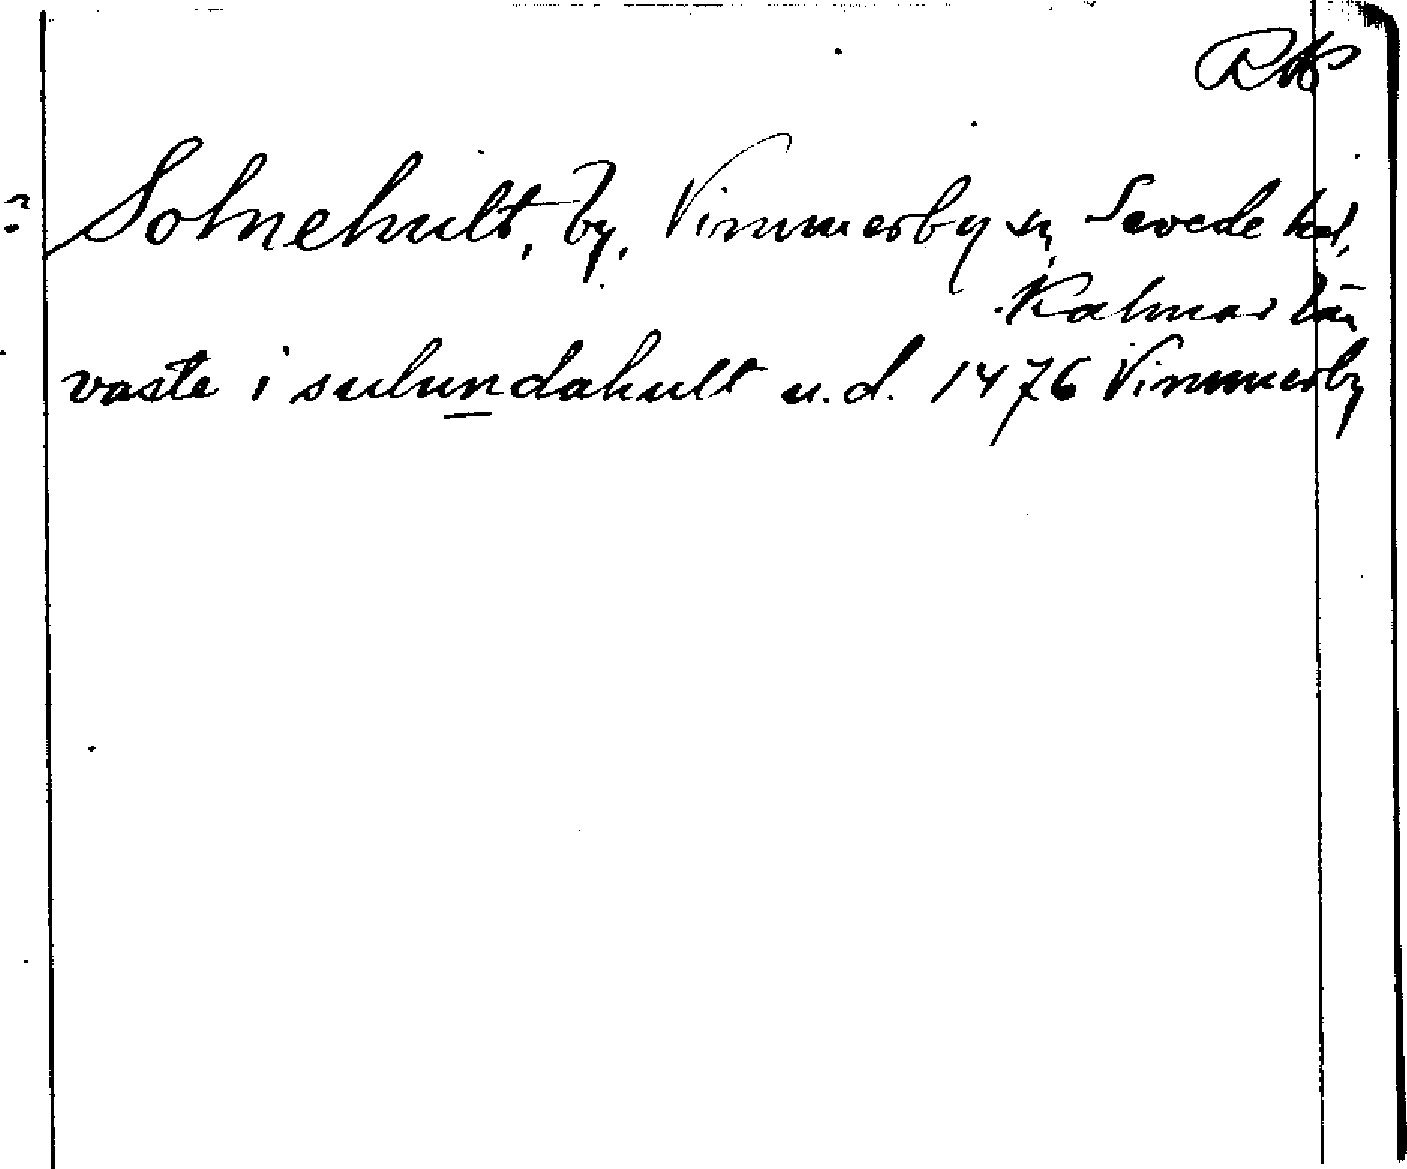 RAP
? Solnehult, by, Vimmerby sn, Sevede hd,
Kalmar län
vaste i sulundahult u.d. 1476 Vimmerby